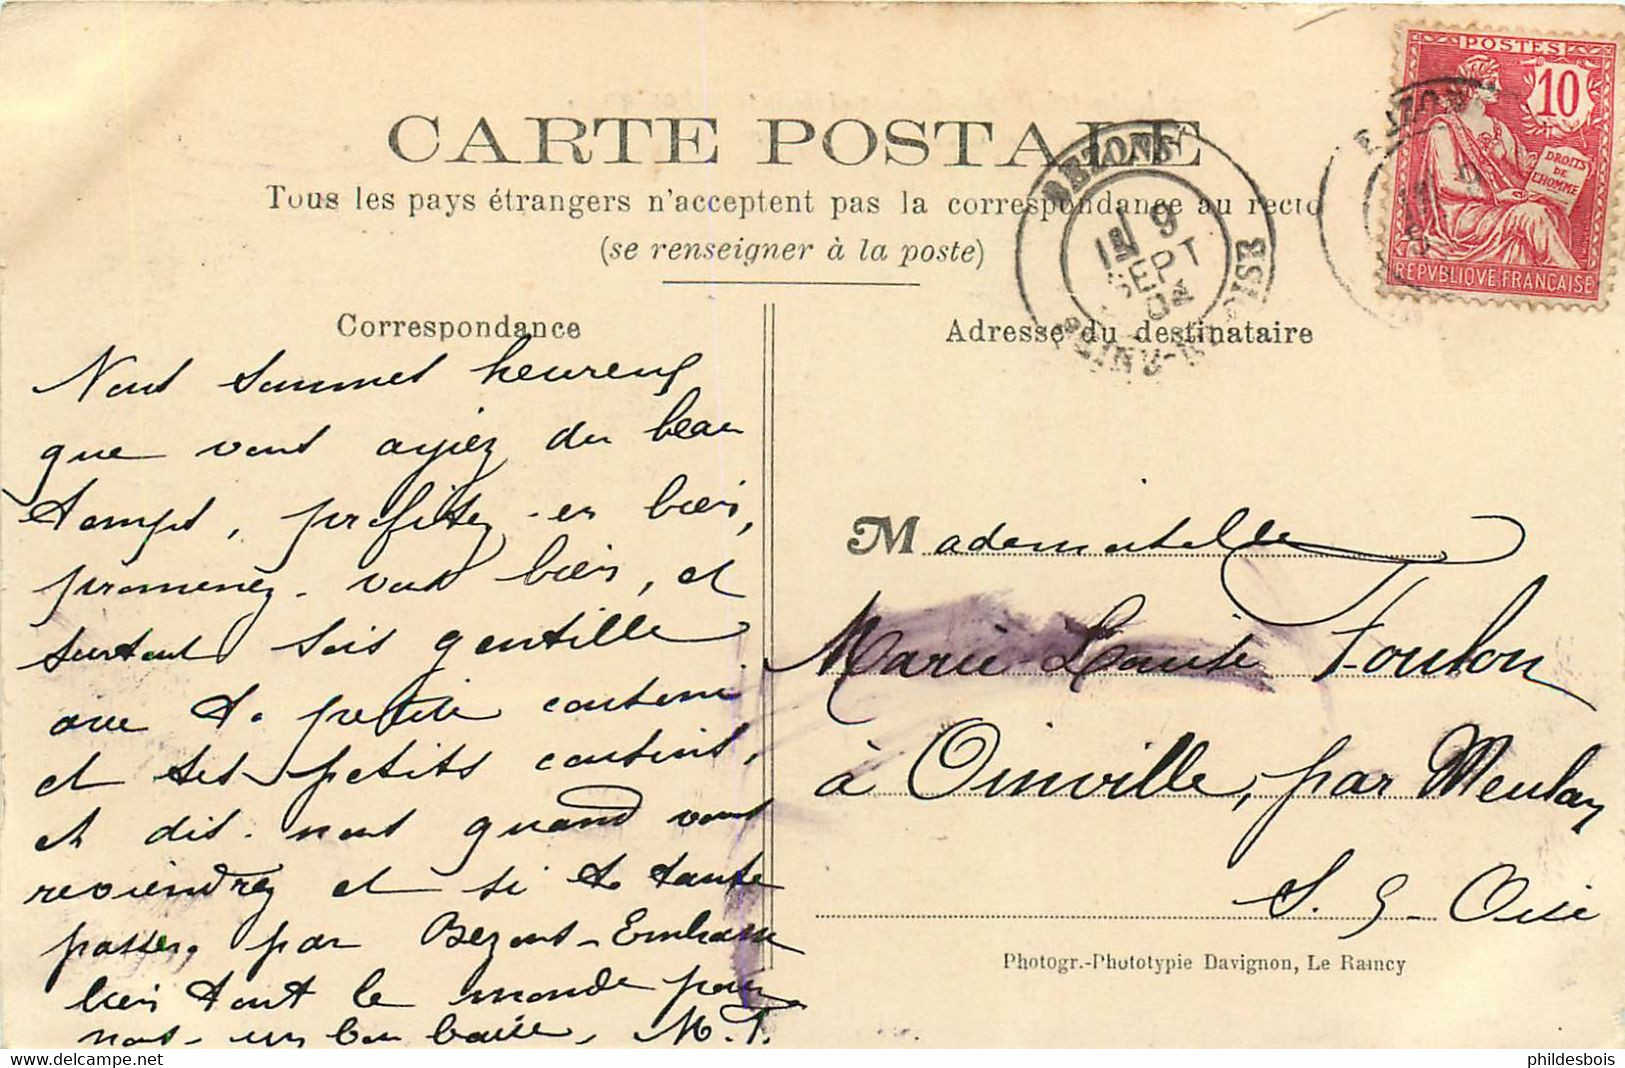 CARTE POSTALE
Tous les pays étrangers n'acceptent pas la correspondance au recto
(se renseigner à la poste)
POSTES
10
DROITS
DE
L'HOMME
REPVBLIQVE FRANÇAISE
BEZONS
9
SEPT
04
SEINE-ET-OISE
Correspondance
Nous sommes heureux
que vous ayiez du beau
temps, profitez-en bien,
promenez-vous bien, et
surtout sois gentille
avec ta petite cousine
et tes petits cousins,
et dis-nous quand vous
reviendrez et si ta tante
passera par Bezons - Embrasse
bien tout le monde pour
nous - un bon baiser, M. F.
Adresse du destinataire
Mademoiselle
Marie-Louise Foulon
à Oinville, par Meulan
S. & Oise
Photogr.-Phototypie Davignon, Le Raincy
phildesbois